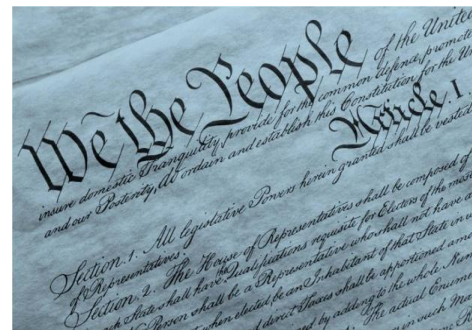 We the People of the United
insure domestic Tranquility, provide for the common defence, promote
and our Posterity, do ordain and establish this Constitution for the U
Article. I.
Section. 1. All legislative Powers herein granted shall be vested
of Representatives.
Section. 2. The House of Representatives shall be composed of
each State shall have the Qualifications requisite for Electors of the most
No Person shall be a Representative who shall not have
when elected, be an Inhabitant of that State in
and direct Taxes shall be apportioned am
by adding to the whole Num
The actual Enume
in such M